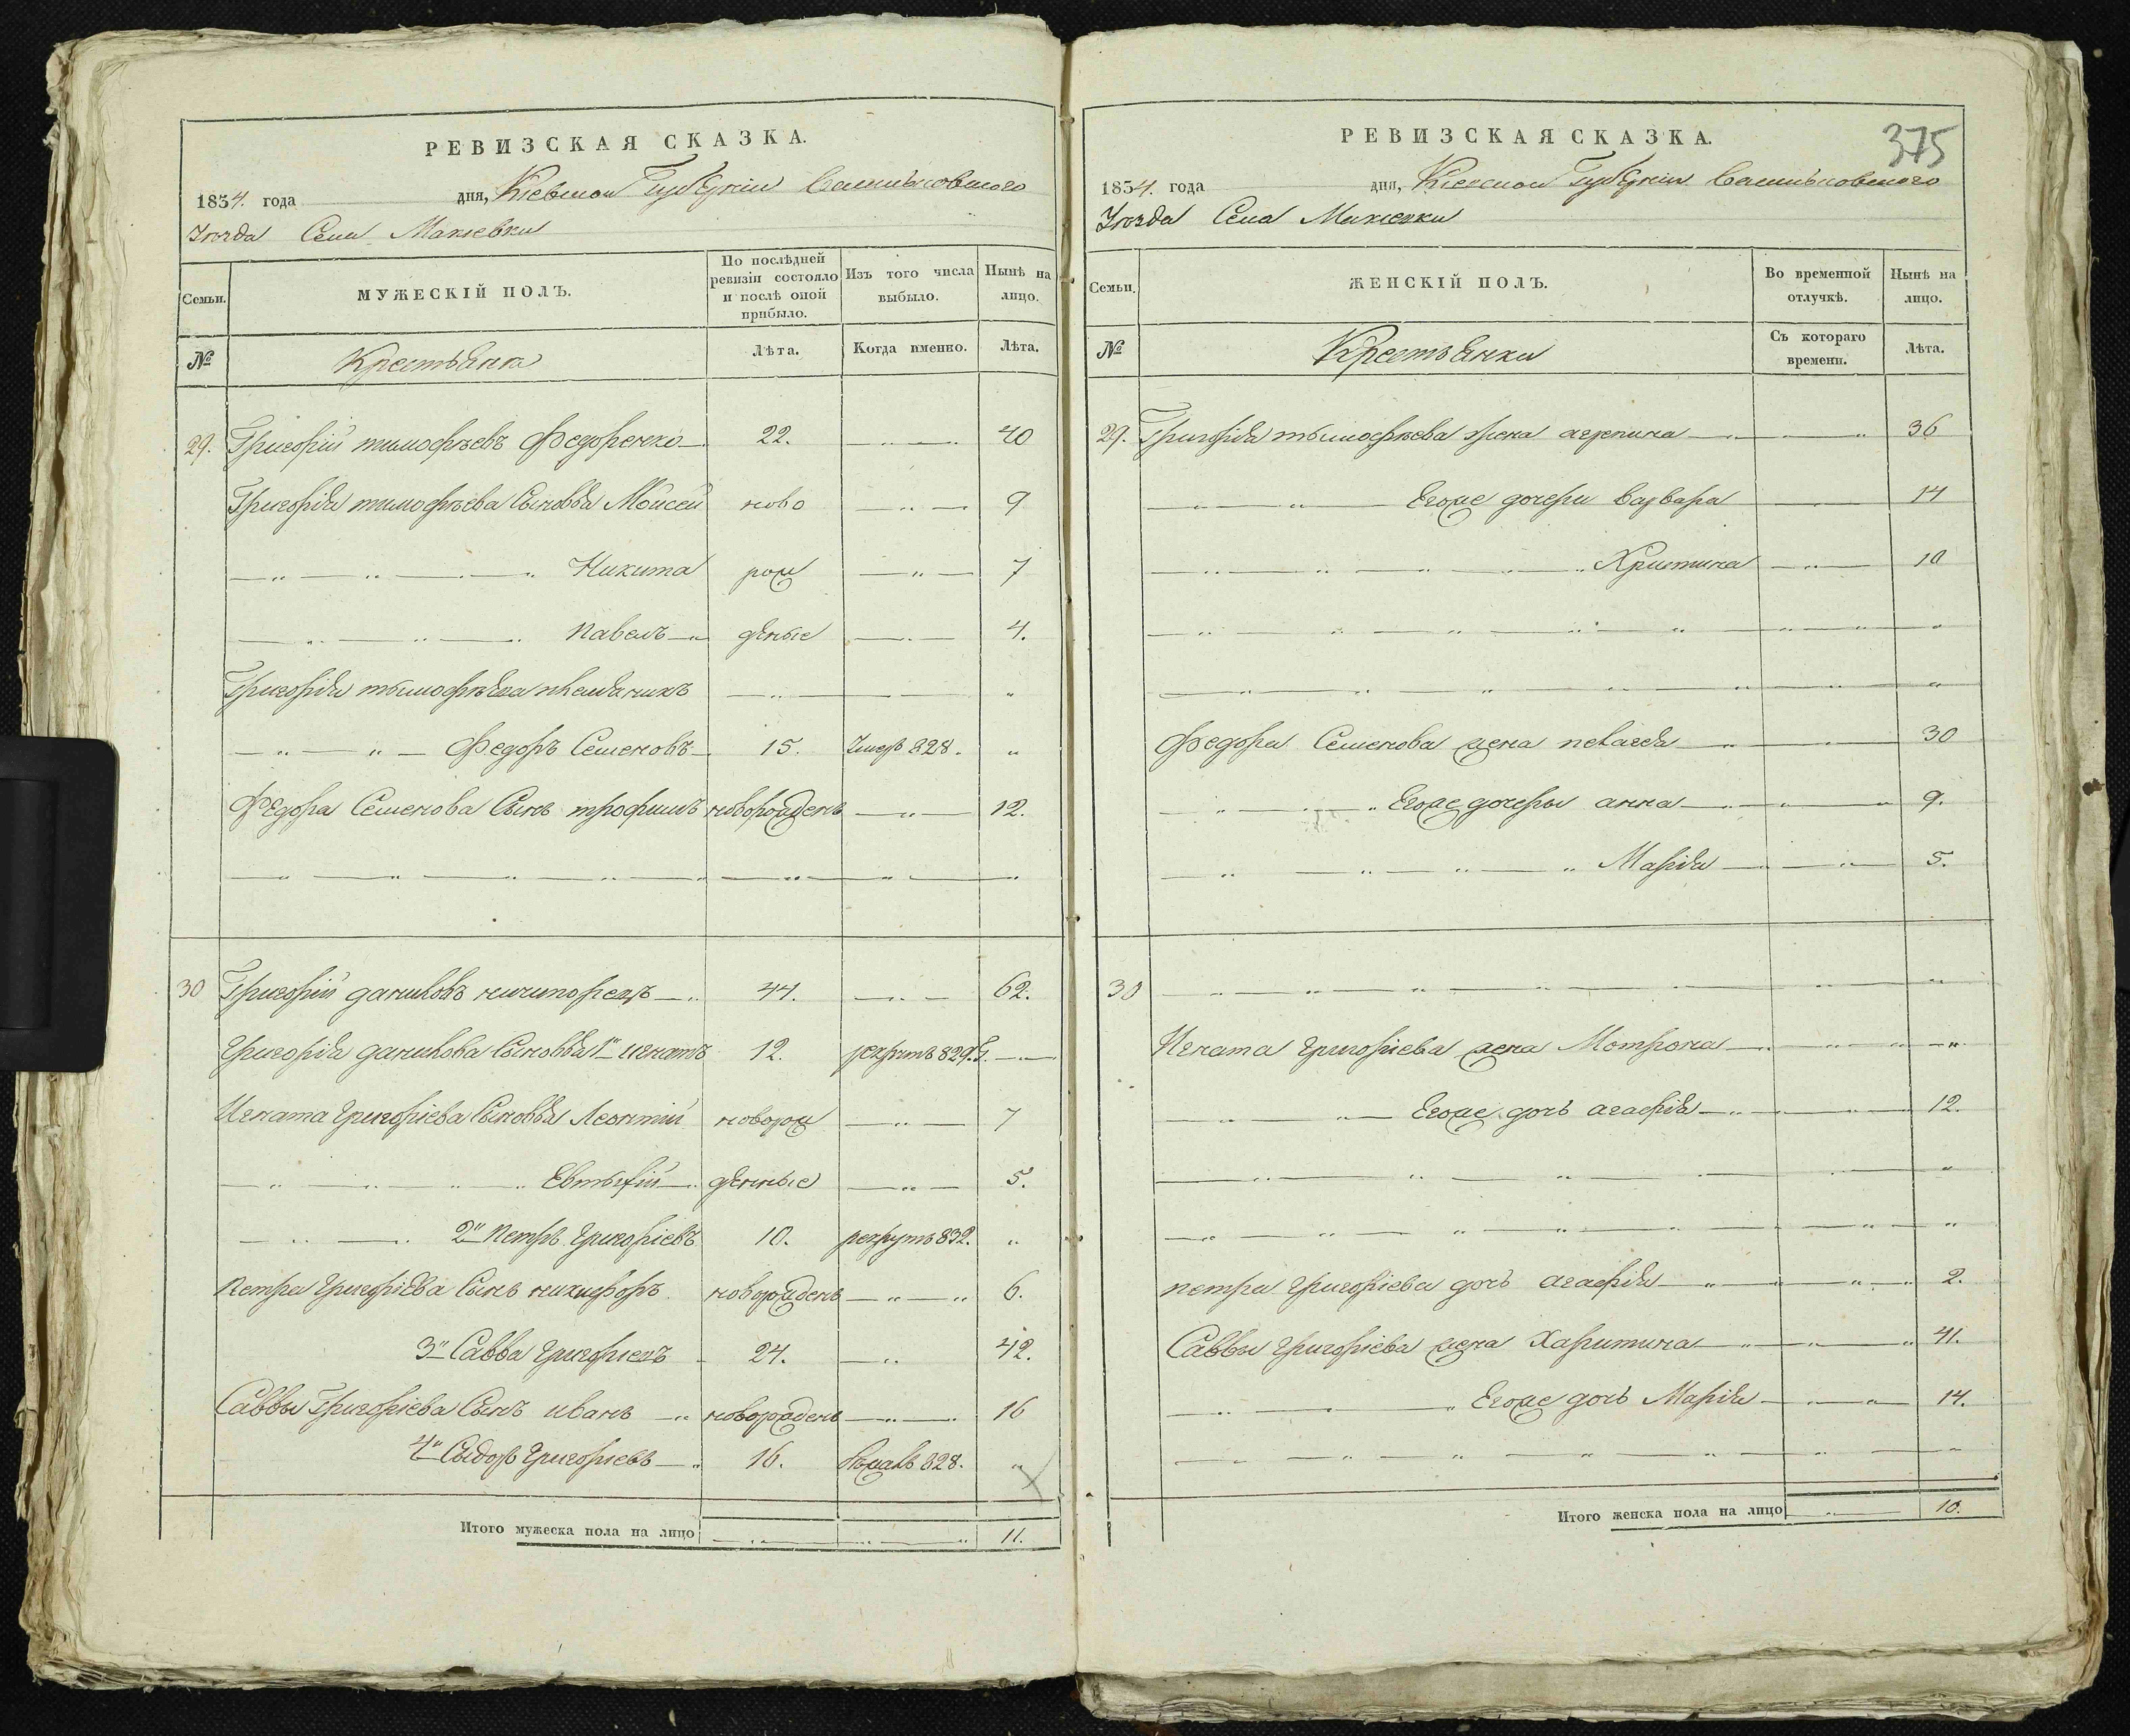 РЕВИЗСКАЯ СКАЗКА.
1834. года дня, Кіевской Губерніи Васильковского
Уѣзда Села Макіевки
Семьи. МУЖЕСКІЙ ПОЛЪ. По послѣдней ревизіи состояло и послѣ оной прибыло. Изъ того числа выбыло. Нынѣ на лицо.
№ Крестьяне Лѣта. Когда именно. Лѣта.
29. Григорій тимофѣевъ Федоренко 22. 40
Григорія тимофѣева Сыновья Моисей ново 9
Никита рож 7
павелъ дѣные 4.
Григорія тымофѣева племяникъ
Федоръ Семеновъ 15. Умеръ 828.
Федора Семенова Сынъ трофимъ новорожденъ 12.
30 Григорій даниловъ 44. 62.
Григорія данилова Сыновья 1й игнатъ 12. рекрутъ 829. г.
Игната Григоріева Сыновья Леонтій новорож 7
Евтыхій дѣнные 5.
2й петръ Григоріевъ 10. рекрутъ 832.
петра Григоріева Сынъ никифоръ новорожденъ 6.
3й Савва Григоріевъ 24. 42.
Саввы Григоріева Сынъ иванъ новорожденъ 16
4й Сыдоръ Григоріевъ 16. бѣжалъ 828.
Итого мужеска пола на лицо 11.
РЕВИЗСКАЯ СКАЗКА. 375
1834. года дня, Кіевской Губерніи Васильковского
Уѣзда Села Макіевки
Семьи. ЖЕНСКІЙ ПОЛЪ. Во временной отлучкѣ. Нынѣ на лицо.
№ Крестьянки Съ котораго времени. Лѣта.
29. Григорія тымофѣева жена агрепина 36
Егоже дочери варвара 14
Христина 10
Федора Семенова жена пелагея 30
Егоже дочеры анна 9.
Марія 5.
30
Игната Григоріева жена Мотрона
Егоже дочь агафія 12.
петра Григоріева дочь агафія 2.
Саввы Григоріева жена Харитина 41.
Егоже дочь Марія 14.
Итого женска пола на лицо 10.